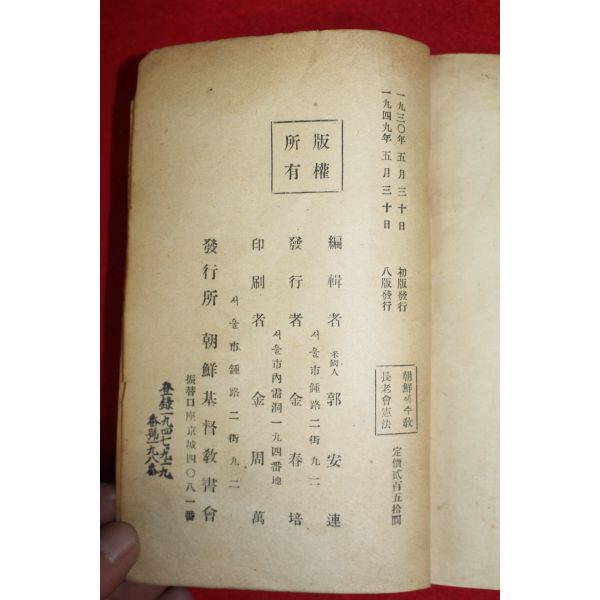 一九三〇年 五月三十日 初版發行
一九四九年 五月三十日 八版發行
朝鮮예수敎
長老會憲法
定價貳百五拾圓
版權
所有
編輯者 米國人 郭安連
서울市鍾路二街九二
發行者 金春培
서울市內需洞一九四番地
印刷者 金周萬
서울市鍾路二街九二
發行所 朝鮮基督敎書會
振替口座京城四〇八一番
登錄一九四七、九、一九
番號一九八番